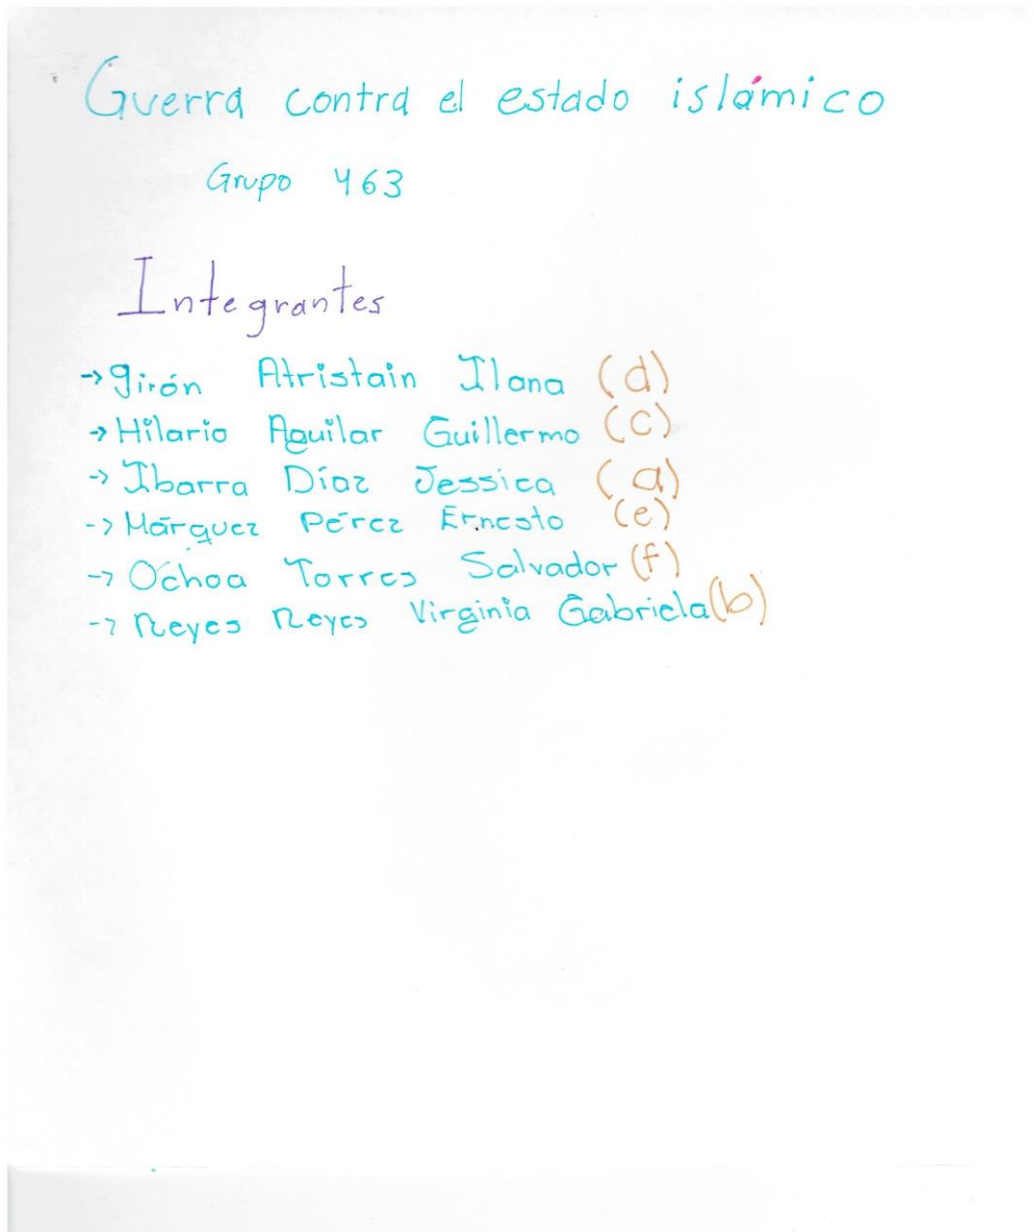 Guerra contra el estado islámico
Grupo 463
Integrantes
→ girón Atristain Ilana (d)
→ Hilario Aguilar Guillermo (c)
→ Ibarra Díaz Jessica (a)
→ Márquez Pérez Ernesto (e)
→ Ochoa Torres Salvador (f)
→ Reyes Reyes Virginia Gabriela (b)